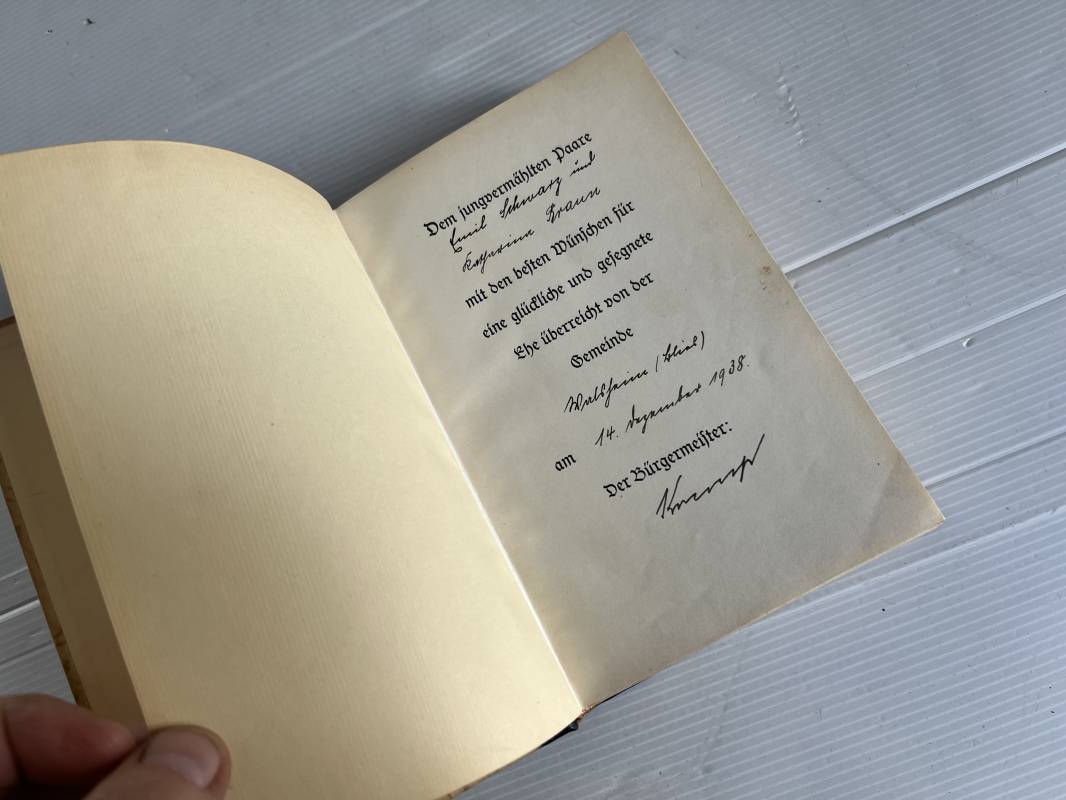 Dem jungvermählten Paare
Emil Schwarz und
Katharina Braun
mit den besten Wünschen für
eine glückliche und gesegnete
Ehe überreicht von der
Gemeinde
Walsheim (Blies)
am 14. Dezember 1938.
Der Bürgermeister: